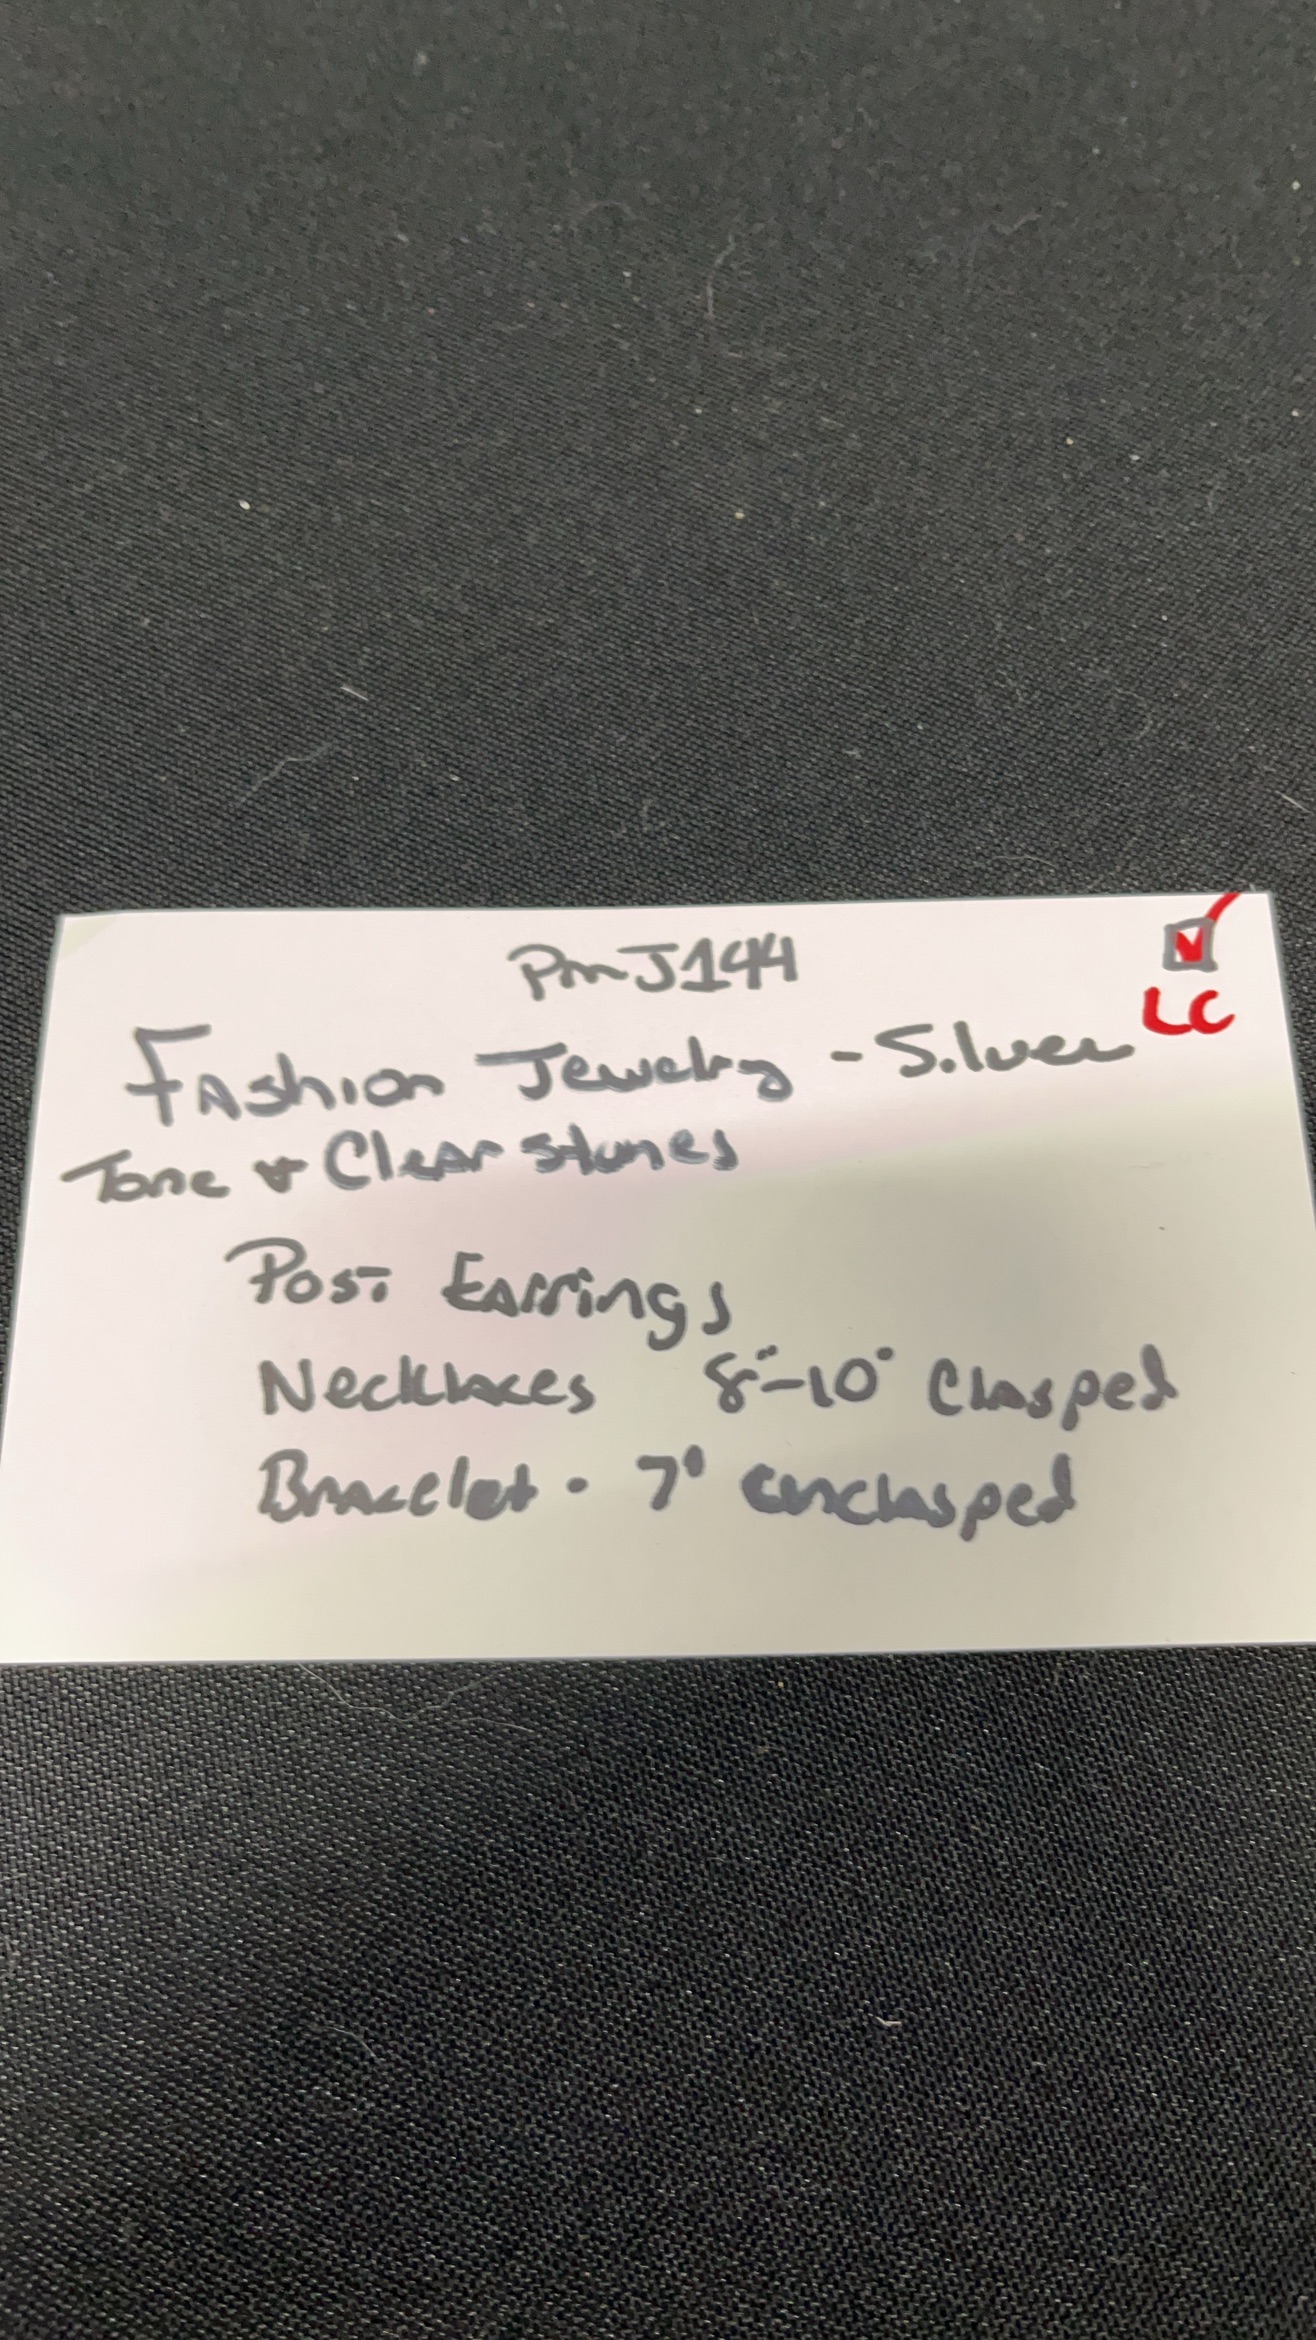 PmJ144
LC
Fashion Jewelry - Silver
Tone & Clear stones
Post Earrings
Necklaces 8"-10" Clasped
Bracelet • 7" unclasped